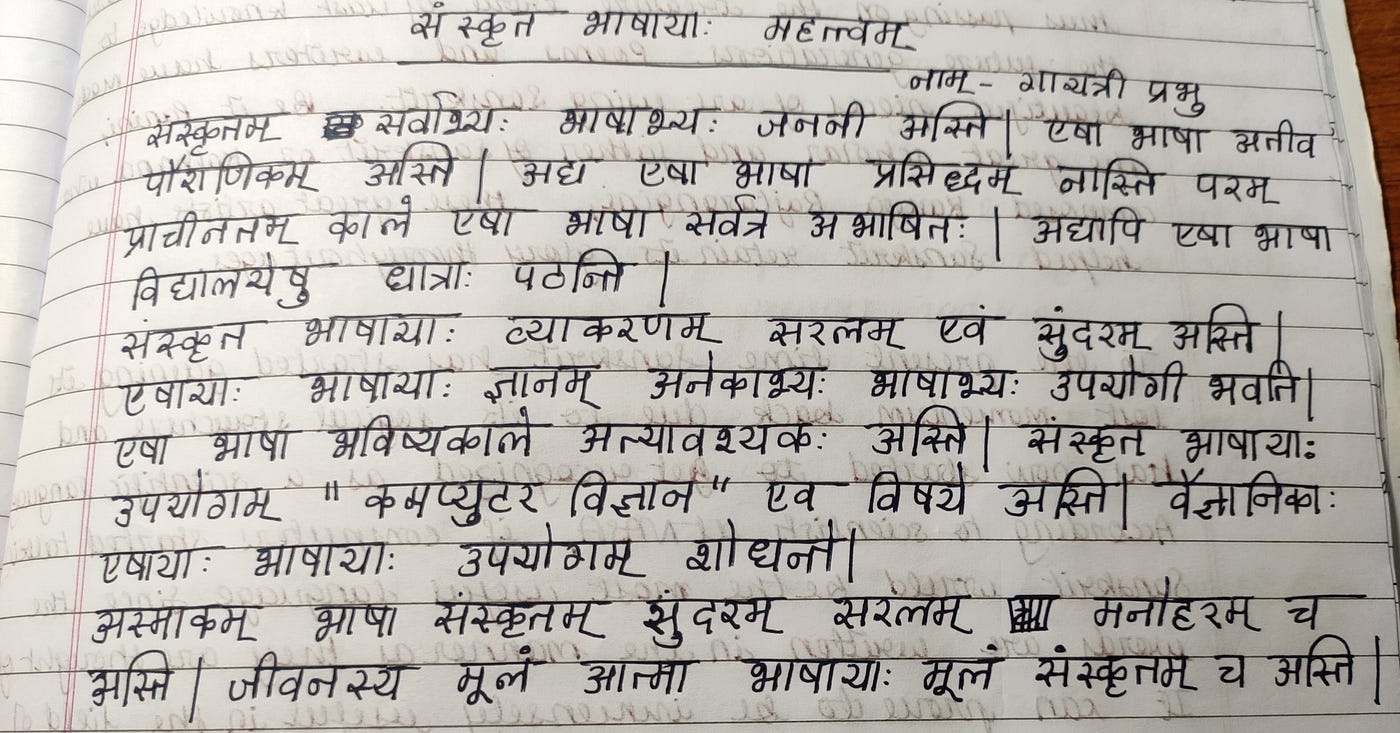 संस्कृत भाषायाः महत्त्वम्
नाम - गायत्री प्रभु
संस्कृतम् सर्वाभ्यः भाषाभ्यः जननी अस्ति | एषा भाषा अतीव
पौराणिकम् अस्ति | अद्य एषा भाषा प्रसिद्धम् नास्ति परम्
प्राचीनतम् काले एषा भाषा सर्वत्र अभाषितः | अद्यापि एषा भाषा
विद्यालयेषु छात्राः पठन्ति |
संस्कृत भाषायाः व्याकरणम् सरलम् एवं सुंदरम् अस्ति |
एषायाः भाषायाः ज्ञानम् अनेकाभ्यः भाषाभ्यः उपयोगी भवति |
एषा भाषा भविष्यकाले अत्यावश्यकः अस्ति | संस्कृत भाषायाः
उपयोगम् "कमप्युटर विज्ञान" एव विषये अस्ति | वैज्ञानिकाः
एषायाः भाषायाः उपयोगम् शोधन्ते |
अस्माकम् भाषा संस्कृतम् सुंदरम् सरलम् मनोहरम् च
अस्ति | जीवनस्य मूलं आत्मा भाषायाः मूलं संस्कृतम् च अस्ति |